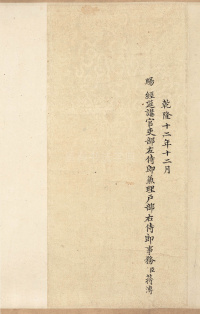 乾隆十二年十二月
賜 經筵講官吏部左侍郎兼理戶部右侍郎事務臣蔣溥